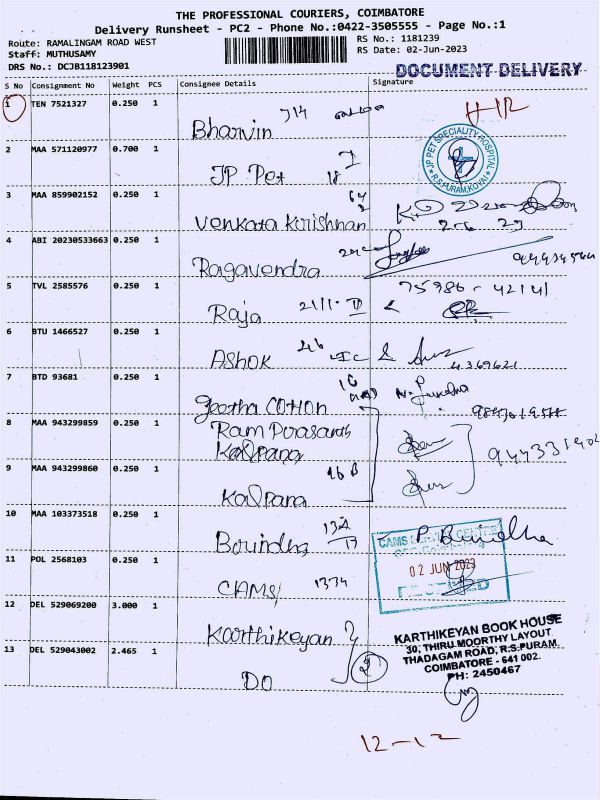 THE PROFESSIONAL COURIERS, COIMBATORE
Delivery Runsheet - PC2 - Phone No.:0422-3505555 - Page No.:1
Route: RAMALINGAM ROAD WEST
RS No.: 1181239
Staff: MUTHUSAMY
RS Date: 02-Jun-2023
DRS No.: DCJB118123901
DOCUMENT DELIVERY
S No Consignment No Weight PCS Consignee Details Signature
1 TEN 7521327 0.250 1 Bharvin 714
2 MAA 571120977 0.700 1 JP Pet 18
JP PET SPECIALITY HOSPITAL
R.S.PURAM, KOVAI
3 MAA 859902152 0.250 1 Venkata Krishnan
2-6 23
4 ABI 20230533663 0.250 1 Ragavendra
5 TVL 2585576 0.250 1 Raja 21/1. II 75986-42141
6 BTU 1466527 0.250 1 Ashok 46
4369621
7 BTD 93681 0.250 1 Geetha COtton 16
8 MAA 943299859 0.250 1 Ram Prasanth
Kalpana
9 MAA 943299860 0.250 1 Kalpana 46 B
10 MAA 103373518 0.250 1 Borindha P.
11 POL 2568103 0.250 1 CAMS 1334
CAMS SERVICE CENTRE
02 JUN 2023
RECEIVED
12 DEL 529069200 3.000 1 Karthikeyan
13 DEL 529043002 2.465 1 DO 2
KARTHIKEYAN BOOK HOUSE
30, THIRU MOORTHY LAYOUT
THADAGAM ROAD, R.S.PURAM,
COIMBATORE - 641 002.
PH: 2450467
12-12